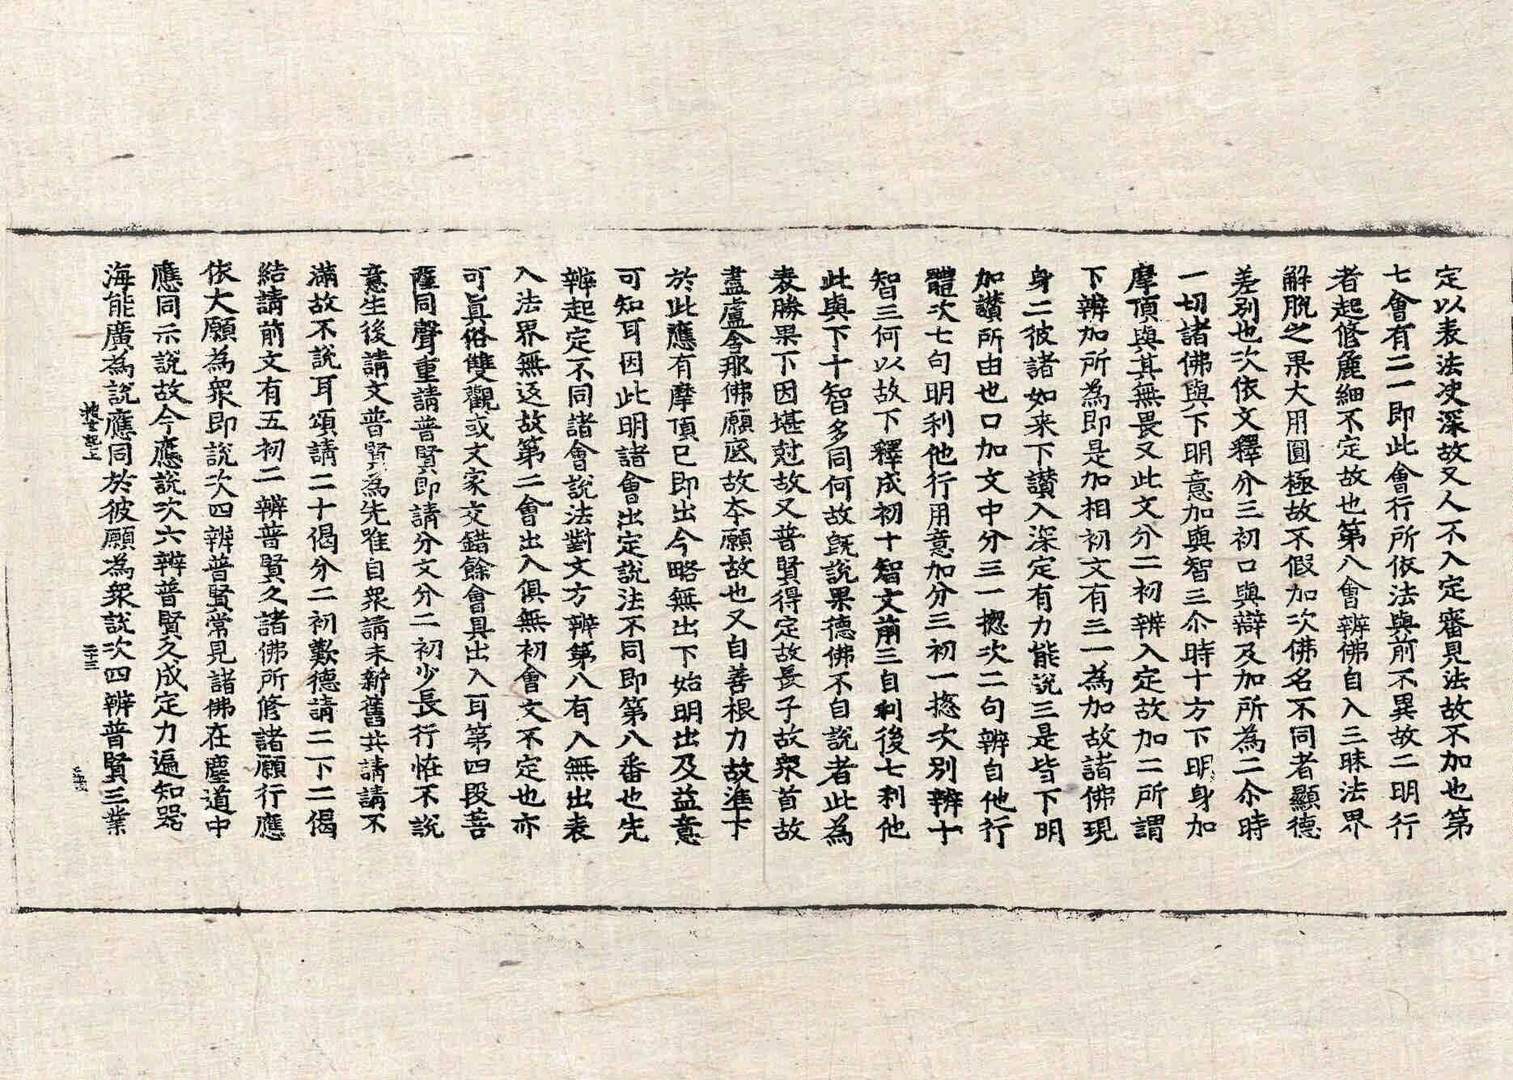 定以表法殳深故又人不入定審見法故不加也第
七會有二一即此會行所依法與前不異故二明行
者起修麁細不定故也第八會辨佛自入三昧法界
解脫之果大用圓極故不假加次佛名不同者顯德
差別也次依文釋分三初口與辯及加所為二尒時
一切諸佛與下明意加與智三尒時十方下明身加
摩頂與其無畏又此文分二初辨入定故加二所謂
下辨加所為即是加相初文有三一為加故諸佛現
身二彼諸如来下讃入深定有力能說三是皆下明
加讃所由也口加文中分三一揔次二句辨自他行
體次七句明利他行用意加分三初一揔次別辨十
智三何以故下釋成初十智文前三自利後七利他
此與下十智多同何故旣說果德佛不自說者此為
表勝果下因堪尅故又普賢得定故長子故衆首故
盡盧舍那佛願底故夲願故也又自善根力故準下
於此應有摩頂已即出今略無出下始明出及益意
可知耳因此明諸會出定說法不同即第八番也先
辨起定不同諸會說法對文方辨第八有入無出表
入法界無返故第二會出入俱無初會文不定也亦
可眞俗雙觀或文家交錯餘會具出入耳第四段菩
薩同聲重請普賢即請分文分二初少長行恠不說
意生後請文普賢為先唯自衆請未新舊共請請不
滿故不說耳頌請二十偈分二初歎德請二下二偈
結請前文有五初二辨普賢久諸佛所修諸願行應
依大願為衆即說次四辨普賢常見諸佛在塵道中
應同示說故今應說次六辨普賢久成定力遍知器
海能廣為說應同於彼願為衆說次四辨普賢三業